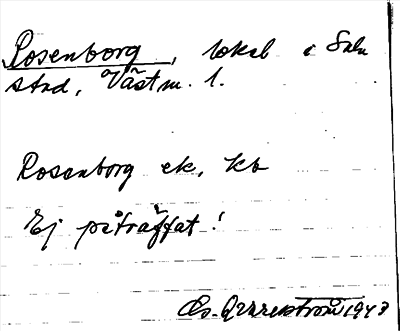 Rosenborg, lokal i Sala
stad, Västm. l.
Rosenborg ek. kb
Ej påträffat!
1943